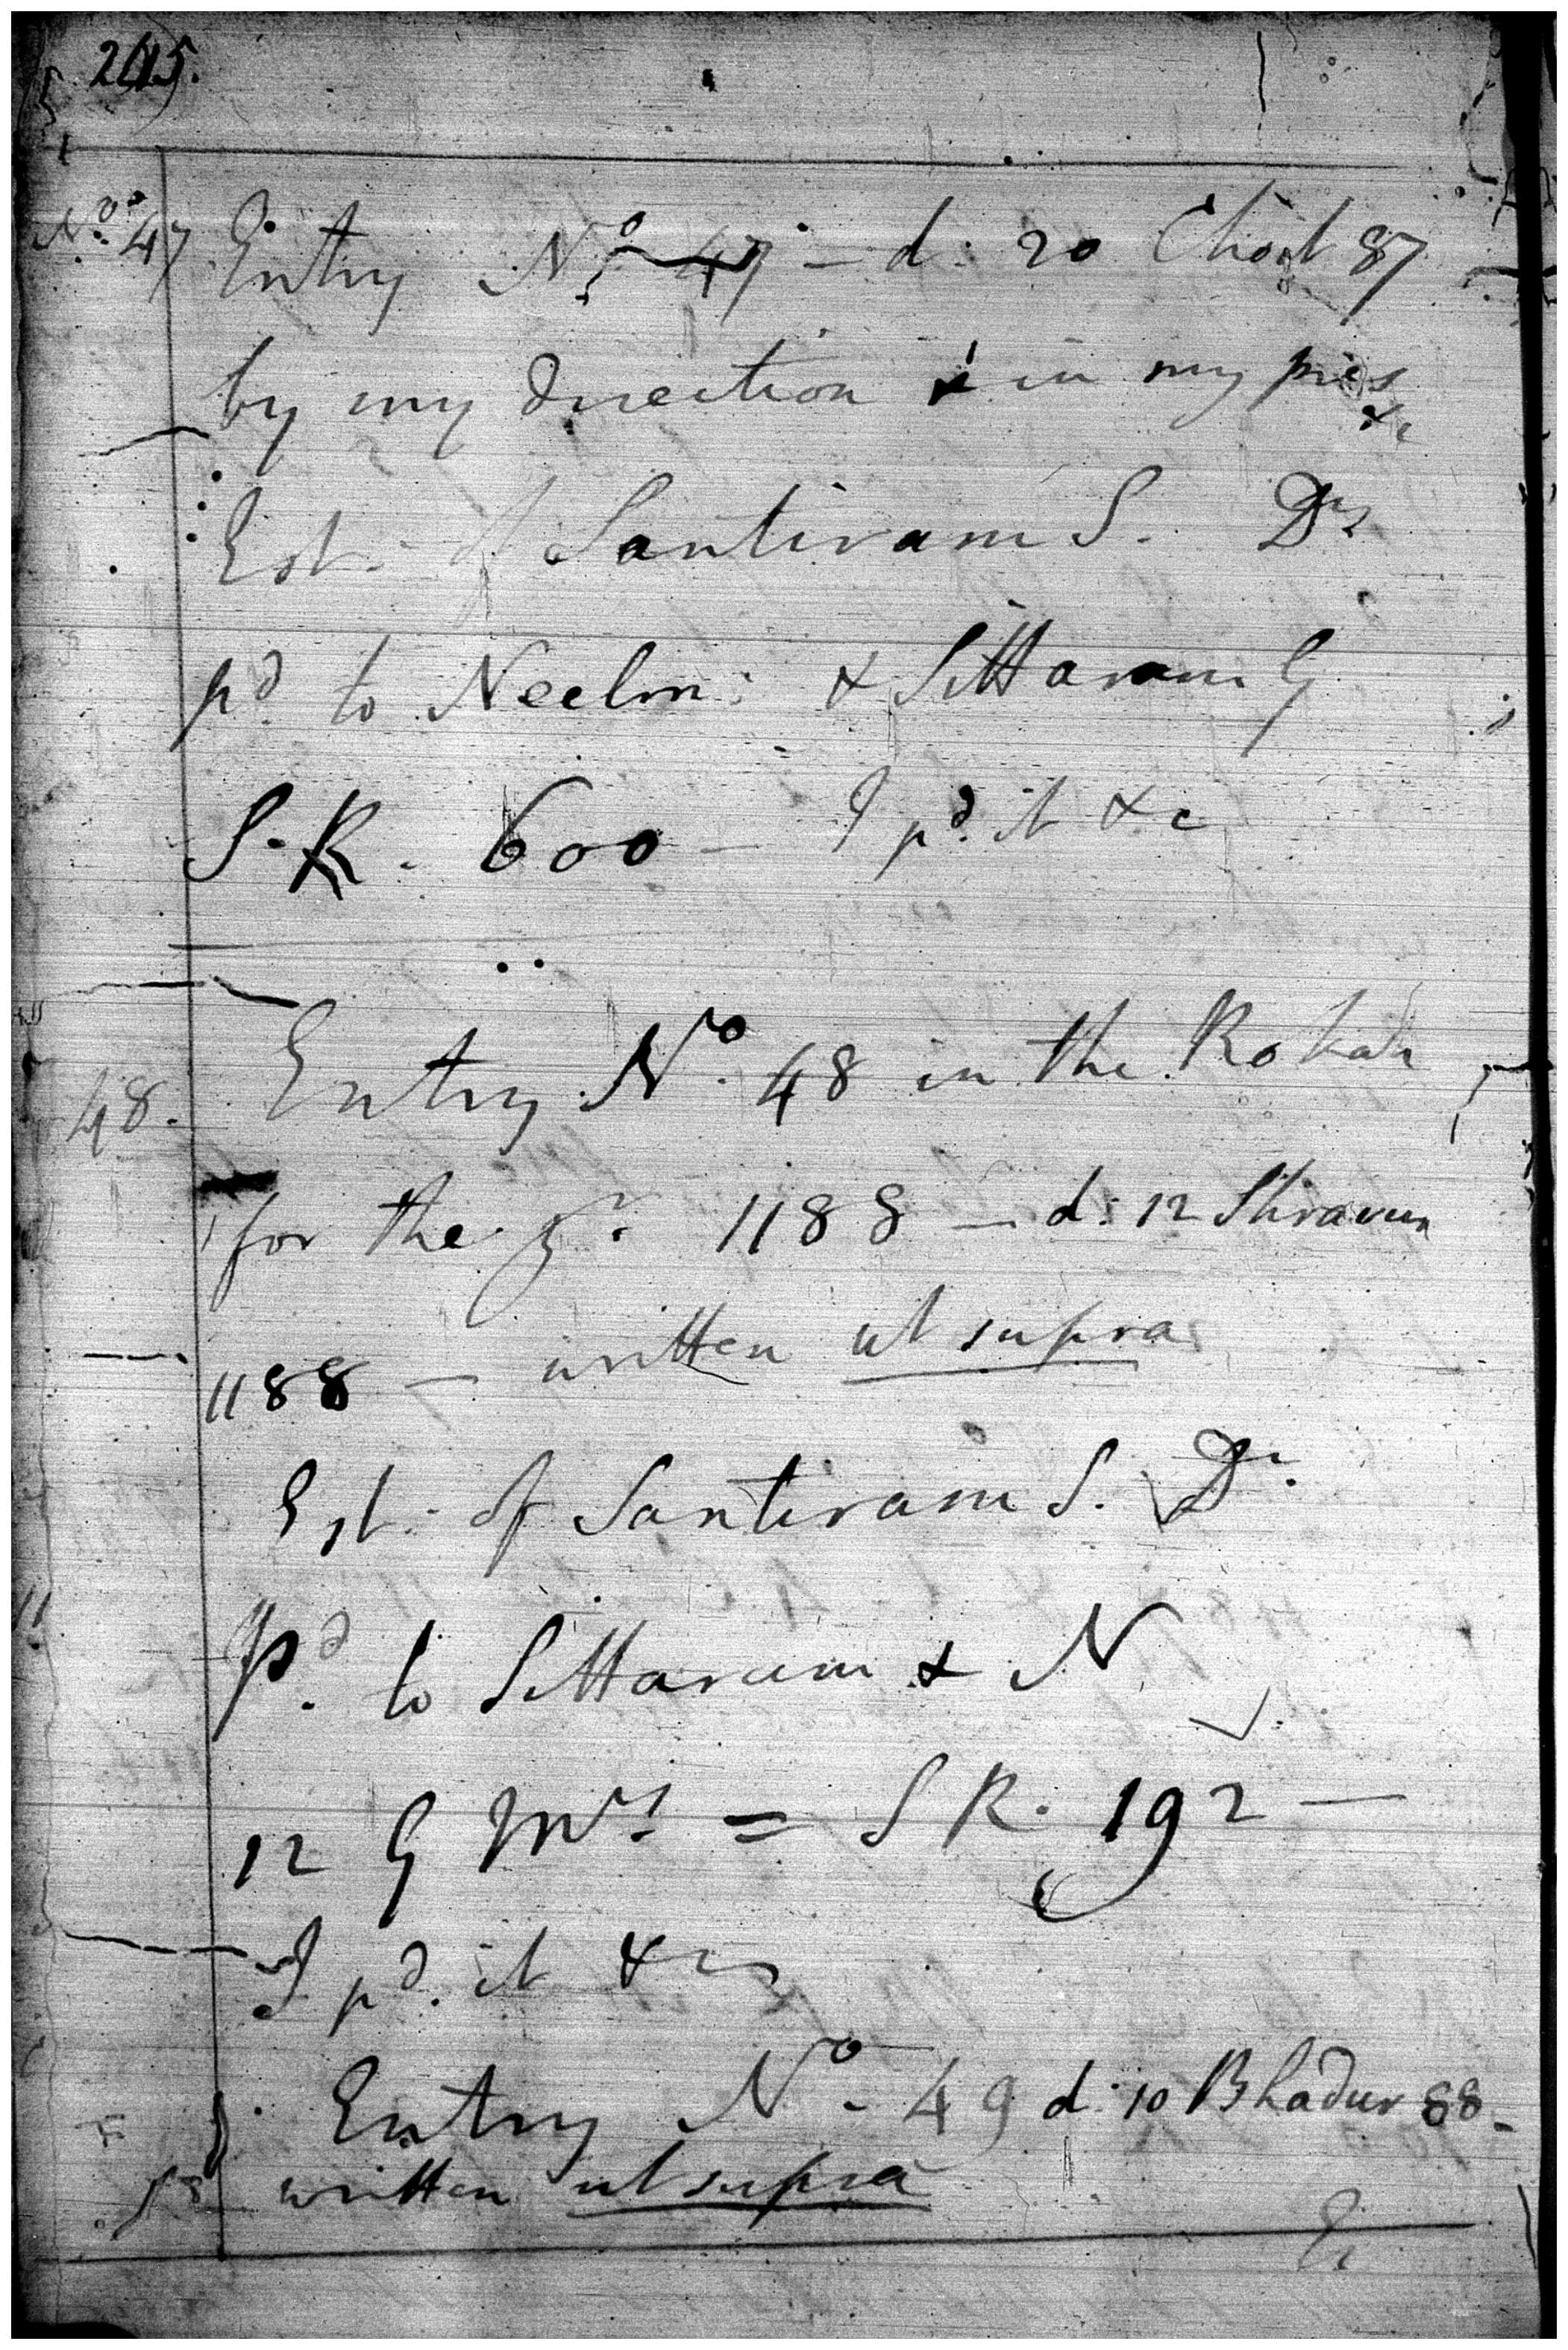 245.
No. 47 Entry No. 47 - d. 20 Choit 87
by my direction & in my pres
&c
Est. of Santiram S. Dr
pd. to Neelm: & Sittaram G
S. R. 600 - I pd. it &c
48. Entry No. 48 in the Rokah
for the yr. 1188 - d: 12 Shravun
1188 - written ut supra
Est. of Santiram S. Dr.
Pd. to Sittaram & N
12 G Mrs = S R. 192 -
I pd. it &c
Entry No. 49 d: 10 Bhadur 88-
written ut supra